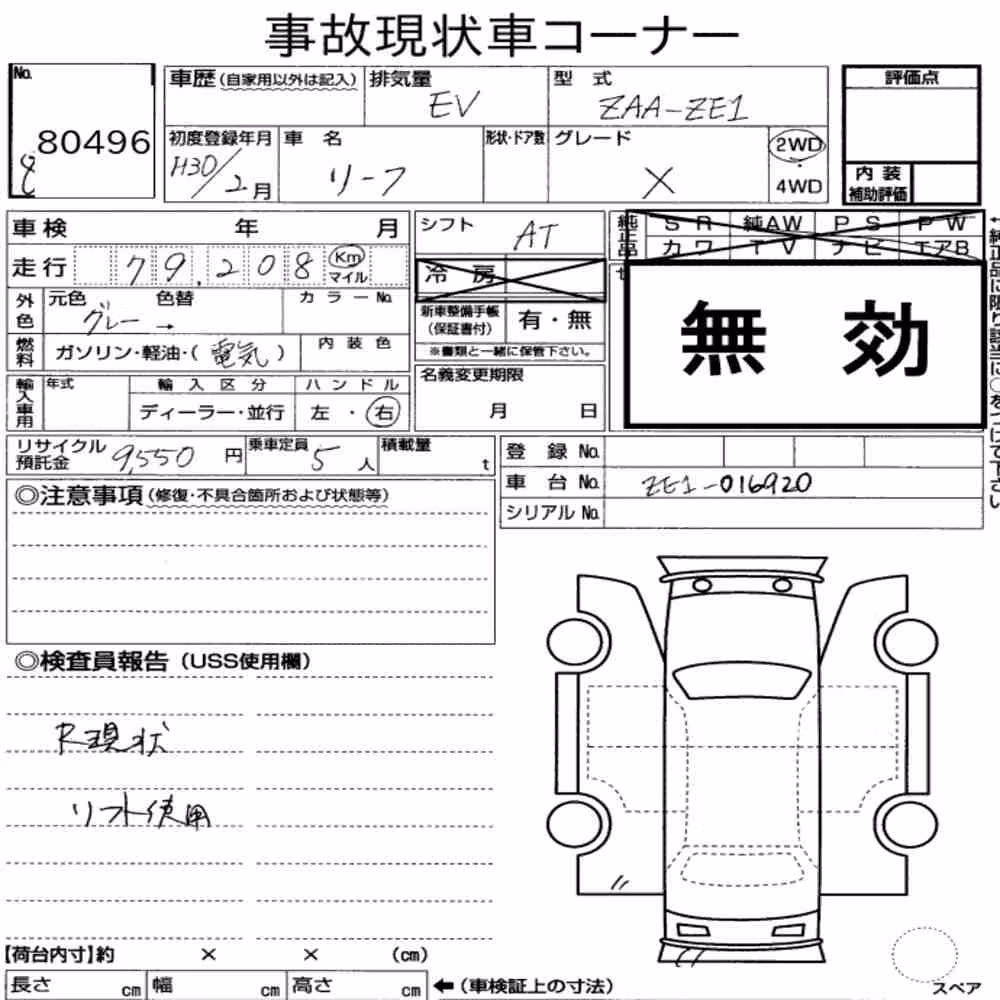 事故現状車コーナー
No. 80496
車歴(自家用以外は記入) 排気量 EV 型 式 ZAA-ZE1
評価点
初度登録年月 H30/2月 車 名 リーフ 形状・ドア数 グレード X 2WD・4WD
内 装 補助評価
車検 年 月 シフト AT
純正品 S R 純AW P S P W
カワ T V ナビ エアB
走行 79,208 Km マイル
冷 房
外色 元色 グレー 色替 → カラーNo.
新車整備手帳(保証書付) 有・無
※書類と一緒に保管下さい。
燃料 ガソリン・軽油・(電気) 内 装 色
無 効
輸入車用 年式 輸 入 区 分 ハ ン ド ル
ディーラー・並行 左 ・ 右
名義変更期限
月 日
←純正品に限り該当に○をつけて下さい
リサイクル預託金 9,550 円 乗車定員 5 人 積載量 t
登 録 No.
車 台 No. ZE1-016920
シリアル No.
◎注意事項(修復・不具合箇所および状態等)
◎検査員報告(USS使用欄)
R現状
リフト使用
【荷台内寸】約 × × (cm)
長さ cm 幅 cm 高さ cm ←(車検証上の寸法)
スペア